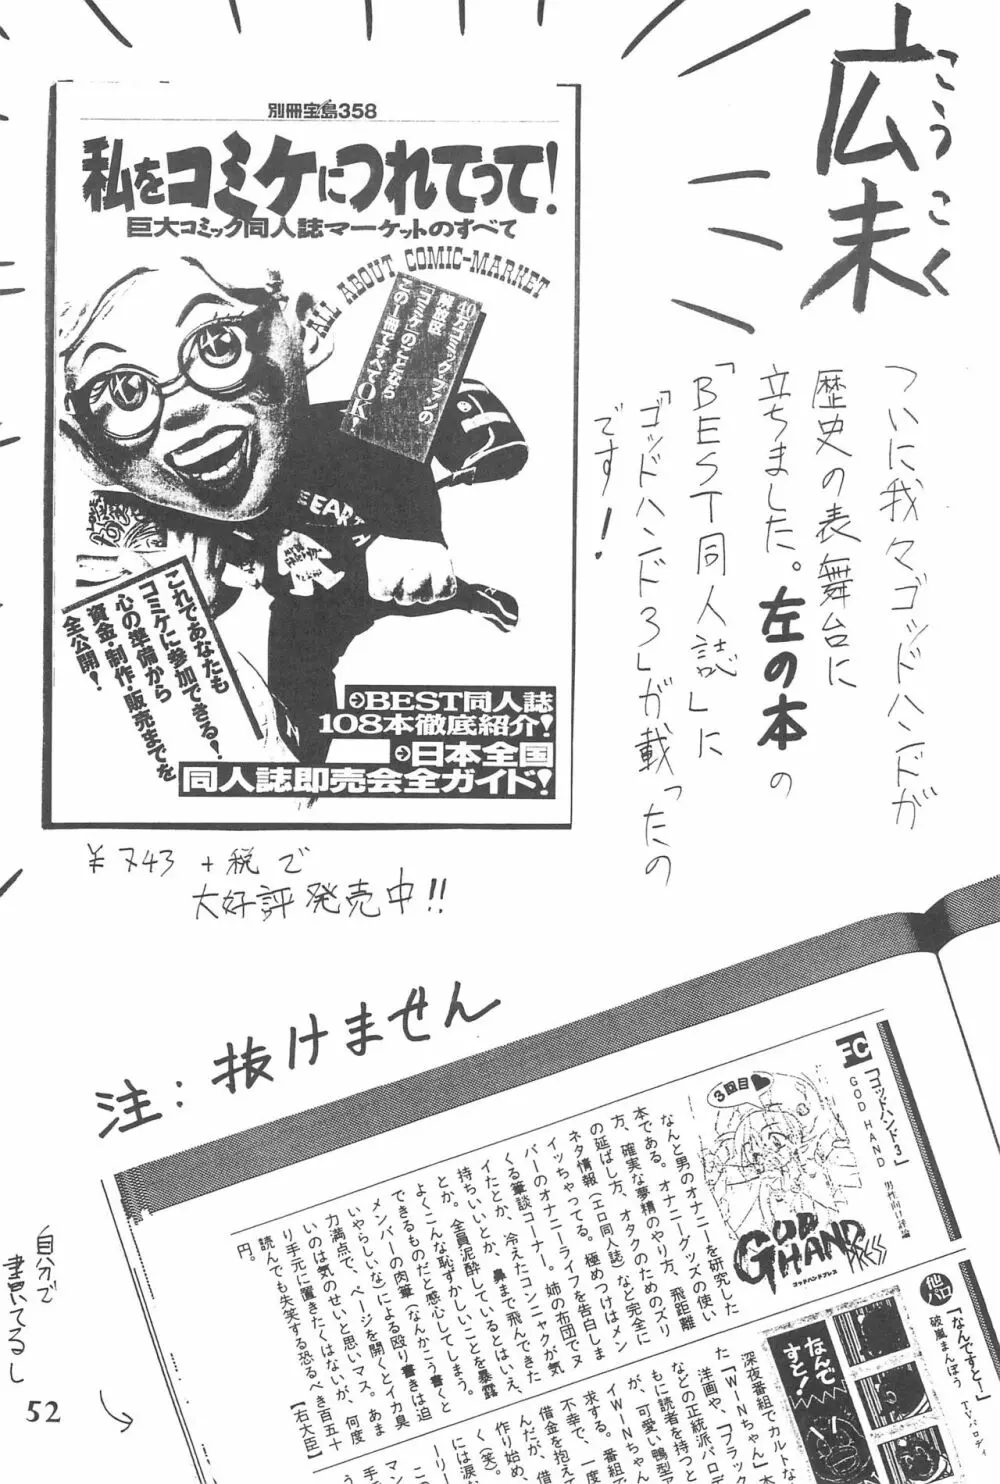 広末
こうこく
ついに我々ゴッドハンドが
歴史の表舞台に
立ちました。左の本の
「BEST同人誌」に
「ゴッドハンド3」が載ったの
です!
別冊宝島358
私をコミケにつれてって!
巨大コミック同人誌マーケットのすべて
ALL ABOUT COMIC-MARKET
40万コミックファンの
解放区
「コミケ」のことなら
この1冊ですべてOK!
EARTH
これであなたも
コミケに参加できる!
心の準備から
資金・制作・販売までを
全公開!
BEST同人誌
108本徹底紹介!
日本全国
同人誌即売会全ガイド!
¥743+税で
大好評発売中!!
注:抜けません
「ゴッドハンド3」
GOD HAND
男性向け評論
3回目
GOD HAND PRESS
ゴッドハンドプレス
なんと男のオナニーを研究した
本である。オナニーグッズの使い
方、確実な夢精のやり方、飛距離
の延ばし方、オタクのためのズリ
ネタ情報(エロ同人誌)など完全に
イッちゃってる。極めつけはメン
バーのオナニーライフを告白しま
くる筆談コーナー。姉の布団でヌ
イたとか、冷えたコンニャクが気
持ちいいとか、鼻まで飛んできた
とか。全員泥酔しているとはいえ、
よくこんな恥ずかしいことを暴露
できるものだと感心してしまう。
メンバーの肉筆(なんかこう書くと
いやらしいな)による殴り書きは迫
力満点で、ページを開くとイカ臭
いのは気のせいと思いマス。あま
り手元に置きたくはないが、何度
読んでも失笑する恐るべき百五十
円。【右大臣】
他パロ
「なんですと!」
破嵐まんぼう
TVパロディ
なんで
すと!
深夜番組でカルトな
た「WINちゃん」
洋画や、「ブラック
などの正統派パロデ
もに読者を持つと
が、可愛い鴨型デ
ィWINちゃん
求する。番組で
不幸で、一度
んだが、借
借金を抱えて
作り始め、
く(笑)。
には涙な
ーリー
マン
手元
自分で
書いてるし
52